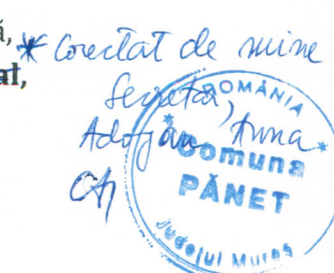 ă,
al,
* Corectat de mine
Secretar,
Adorján Anna
ROMÂNIA
Comuna
PĂNET
Județul Mureș